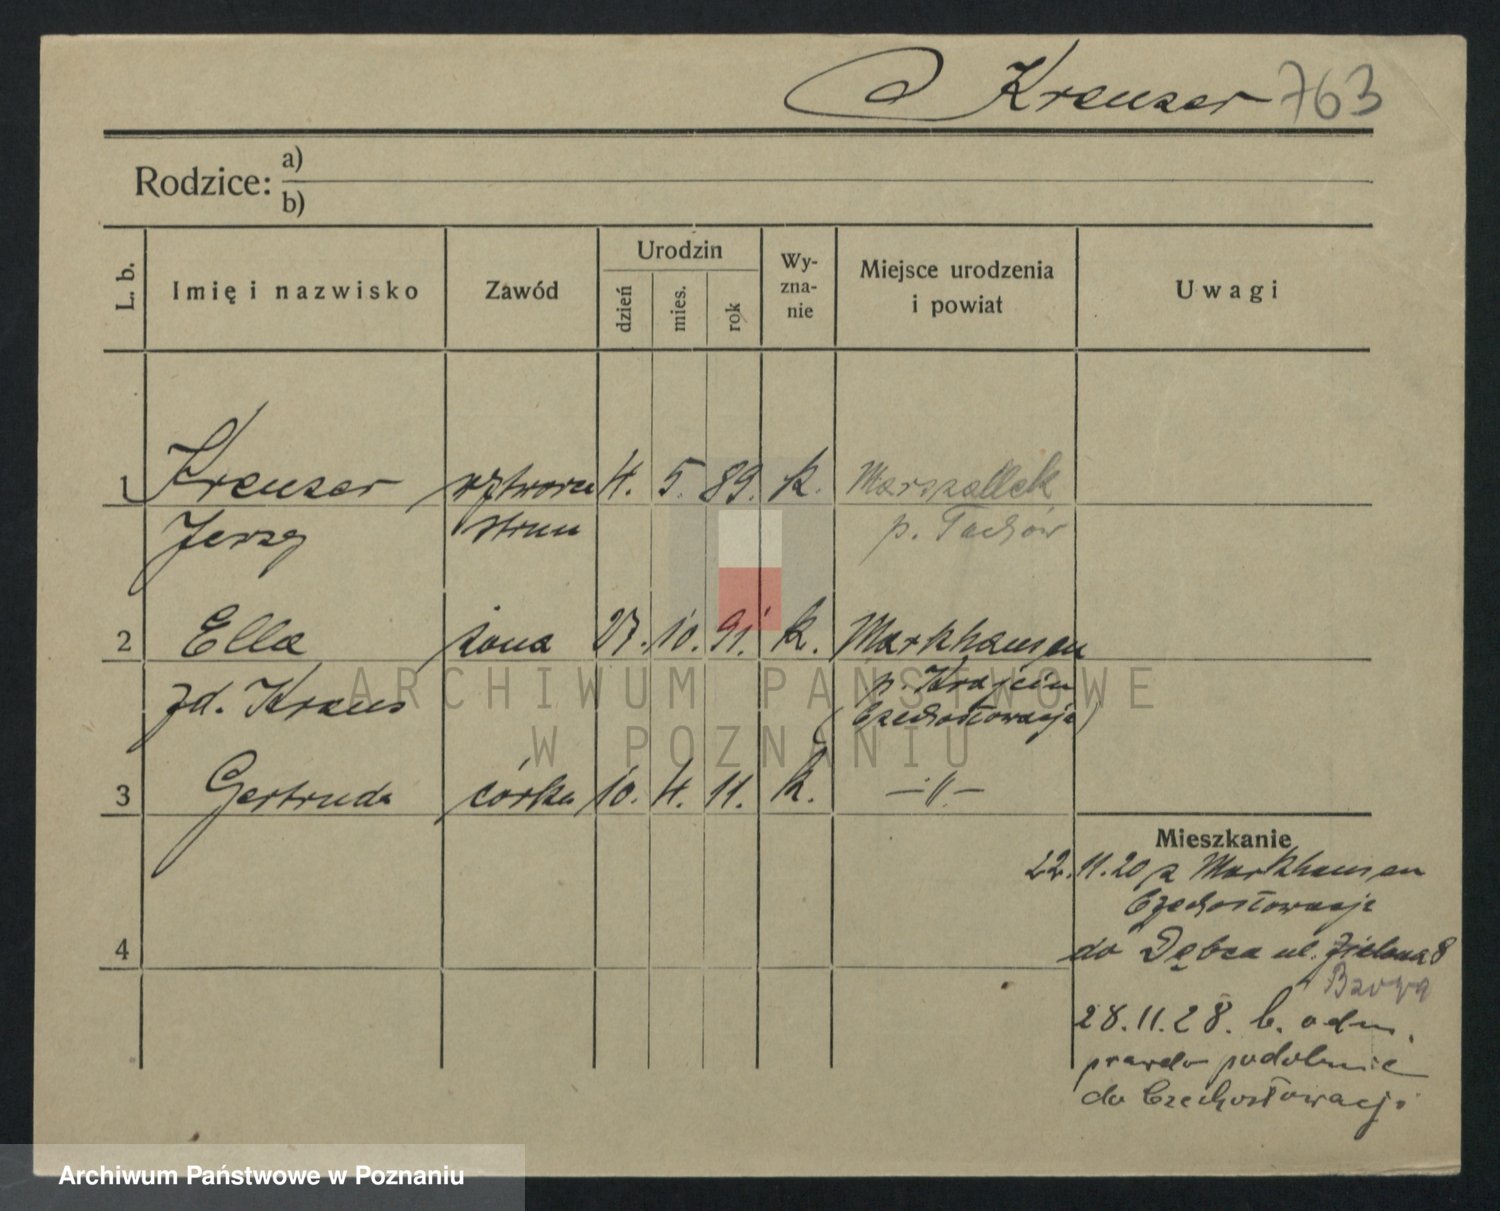 Kreuzer 763
Rodzice: a)
b)
L. b.
Imię i nazwisko
Zawód
Urodzin
dzień
mies.
rok
Wy-
zna-
nie
Miejsce urodzenia
i powiat
Uwagi
1 Kreuzer wytwórca 4. 5. 89. k. Marszallek
Jerzy strun p. Tachów
2 Ella żona 27. 10. 91. k. Markhausen
zd. Kraus p.
(Czechosłowacja)
3 Gertruda córka 10. 4. 11. k. —"—
4
Mieszkanie
22.11.20 z Markhausen
Czechosłowacja
do Dębca ul. Zielona 8
28.11.28. b. odm.
prawdopodobnie
do Czechosłowacji
ARCHIWUM PAŃSTWOWE
W POZNANIU
Archiwum Państwowe w Poznaniu